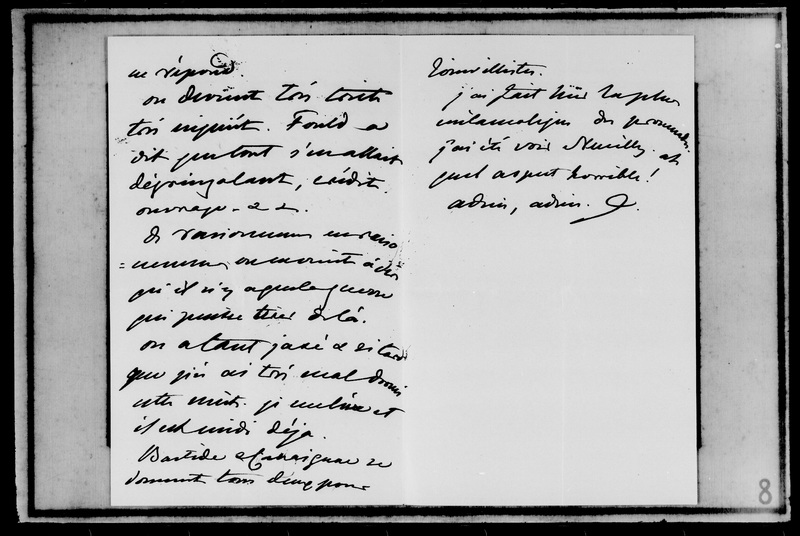 ne répond.
on devient très triste
très inquiet. Fould a
dit partout s'en allait
dégringolant, crédit
ouvrage - &&.
De raisonnemens en raiso
=nemens, on en vient à dire
qu'il n'y a que la guerre
qui puisse tirer de là.
on a tant jasé & si tard
que j'en ai très mal dormi
cette nuit. je me lève et
il est midi déja.
Bastide & Cavaignac se
donnent tous deux pour
Thouvellistes.
j'ai fait hier la plus
mélancolique des promenades.
j'ai été voir Neuilly. ah
quel aspect horrible!
adieu, adieu.
8